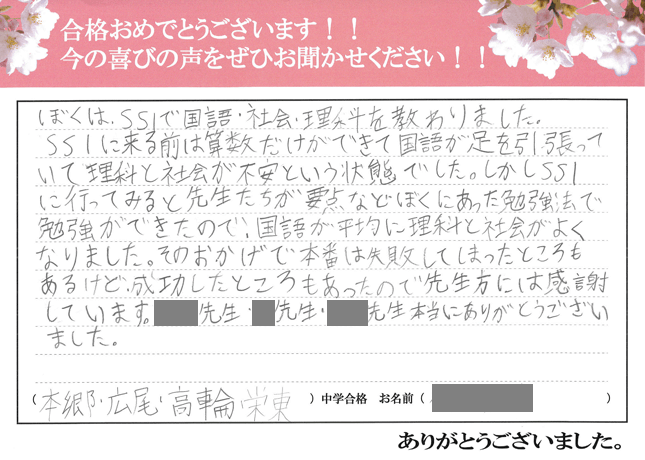 合格おめでとうございます！！
今の喜びの声をぜひお聞かせください！！
ぼくは、SS1で国語・社会・理科を教わりました。
SS1に来る前は算数だけができて国語が足を引っ張って
いて理科と社会が不安という状態でした。しかしSS1
に行ってみると先生たちが要点などぼくにあった勉強法で
勉強ができたので、国語が平均に理科と社会がよく
なりました。そのおかげで本番は失敗してしまったところも
あるけど、成功したところもあったので先生方には感謝
しています。先生・先生・先生本当にありがとうござい
ました。
（本郷・広尾・高輪・栄東）中学合格 お名前（ ）
ありがとうございました。